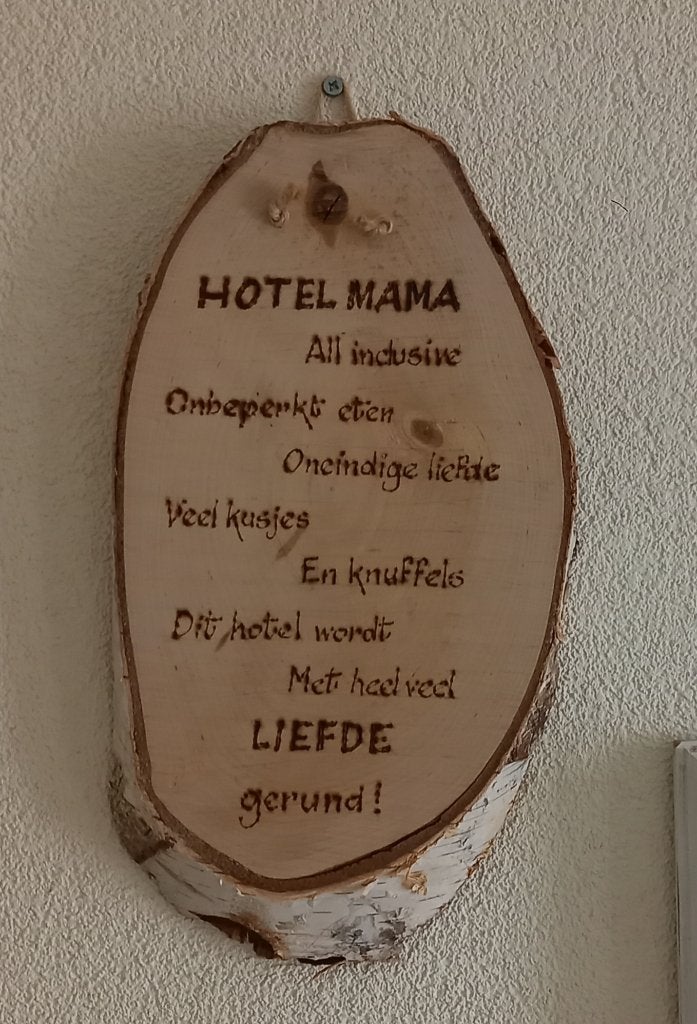 HOTEL MAMA
All inclusive
Onbeperkt eten
Oneindige liefde
Veel kusjes
En knuffels
Dit hotel wordt
Met heel veel
LIEFDE
gerund!